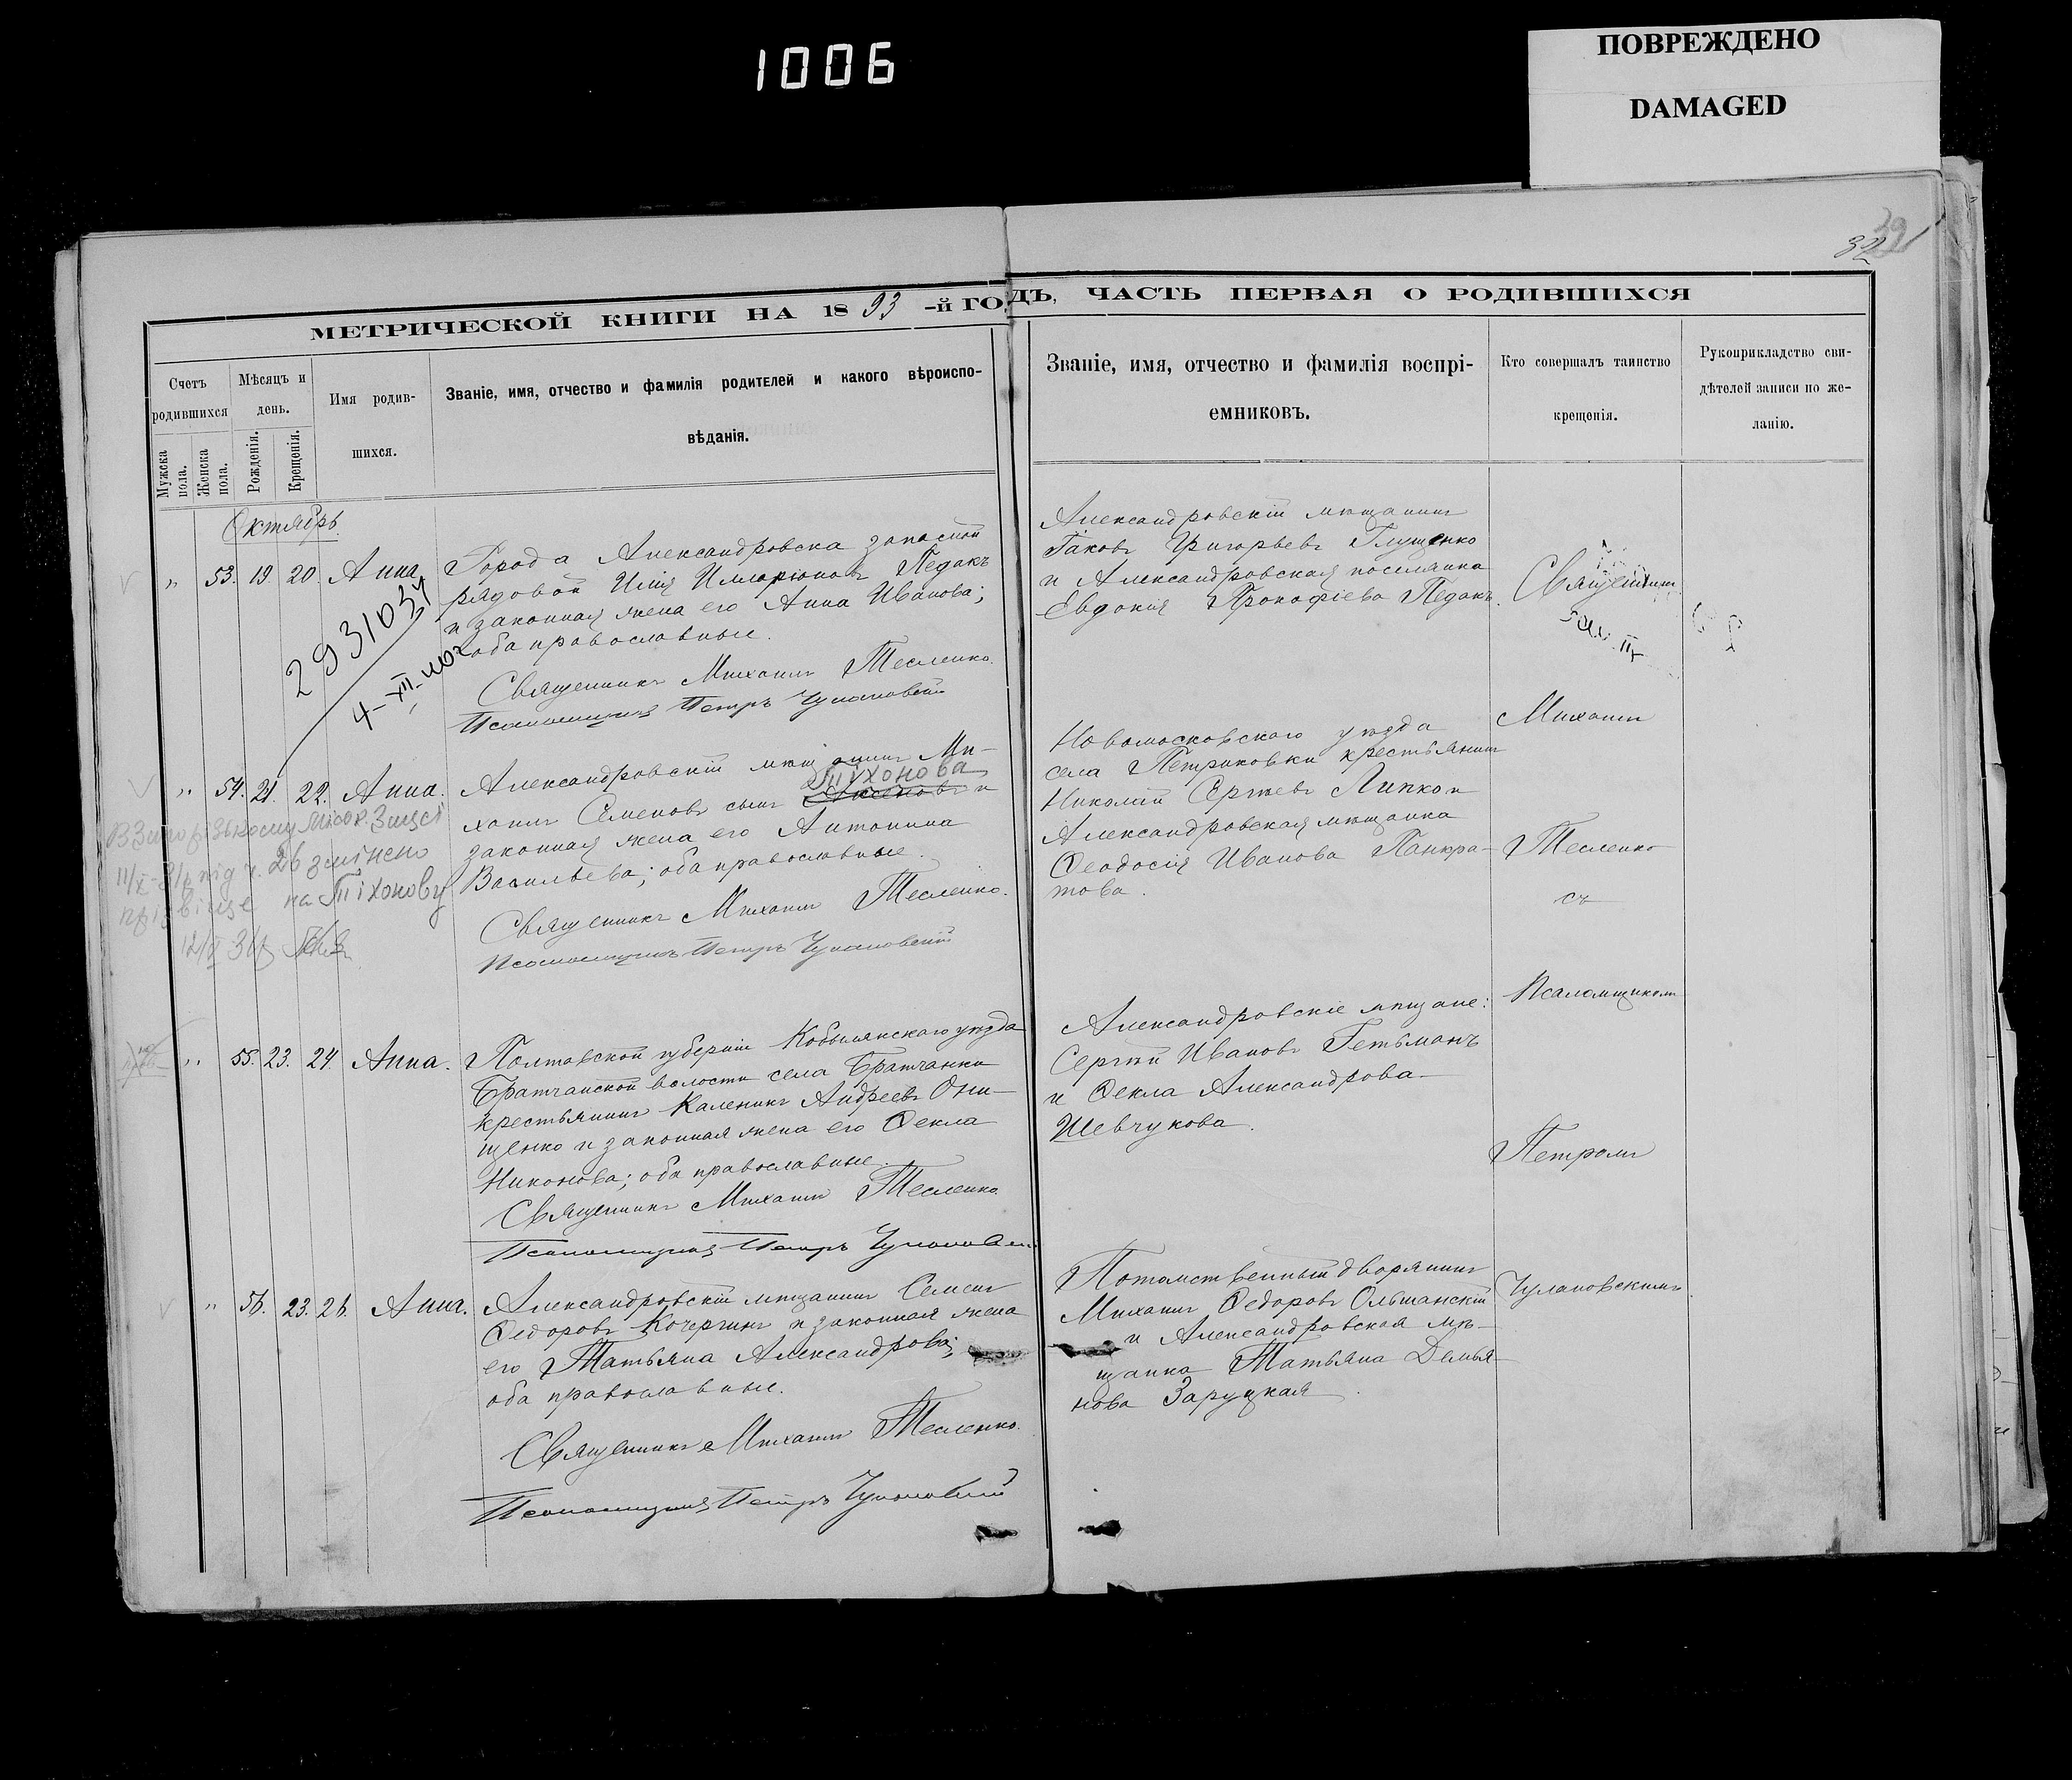 1006
ПОВРЕЖДЕНО
DAMAGED
32
МЕТРИЧЕСКОЙ КНИГИ НА 1893-й ГОДЪ, ЧАСТЬ ПЕРВАЯ О РОДИВШИХСЯ
Счетъ родившихся
Мужска пола.
Женска пола.
Мѣсяцъ и день.
Рожденія.
Крещенія.
Имя родив-
шихся.
Званіе, имя, отчество и фамилія родителей и какого вѣроиспо-
вѣданія.
Званіе, имя, отчество и фамилія воспрі-
емниковъ.
Кто совершалъ таинство
крещенія.
Рукоприкладство сви-
дѣтелей записи по же-
ланію.
Октябрь.
" 53. 19. 20. Анна
Города Александровска запасной
рядовой Илія Илларіоновъ Педакъ
и законная жена его Анна Иванова;
оба православные.
Священникъ Михаилъ Тесленко.
Псаломщикъ Петръ Чулановскій
2931034
4-XII-
Александровскій мѣщанинъ
Іаковъ Григорьевъ Глущенко
и Александровская поселянка
Евдокія Прокофіева Педакъ.
" 54. 21. 22. Анна.
Александровскій мѣщанинъ Ми-
хаилъ Семеновъ сынъ Тіхонова и
законная жена его Антонина
Васильева; оба православные.
Священникъ Михаилъ Тесленко.
Псаломщикъ Петръ Чулановскій
під ч. 26 змінено
прізвище на Тіхонову
Новомосковского уѣзда
села Петриковки крестьянинъ
Николай Сергѣевъ Липко и
Александровская мѣщанка
Ѳеодосія Иванова Панкра-
това.
" 55. 23. 24. Анна.
Полтавской губерніи Кобылякскаго уѣзда
Братчанской волости села Братчанки
крестьянинъ Каленикъ Андреевъ Они-
щенко и законная жена его Ѳекла
Никонова; оба православные.
Священникъ Михаилъ Тесленко.
Псаломщикъ Петръ Чулановскій
Александровскіе мѣщане:
Сергѣй Ивановъ Гетьманъ
и Ѳекла Александрова
Шевчукова.
" 56. 23. 26. Анна.
Александровскій мѣщанинъ Семенъ
Ѳедоровъ Кочергинъ и законная жена
его Татьяна Александрова;
оба православные.
Священникъ Михаилъ Тесленко.
Псаломщикъ Петръ Чулановскій
Потомственный дворянинъ
Михаилъ Ѳедоровъ Ольшанскій
и Александровская мѣ-
щанка Татьяна Демья-
нова Заруцкая.
Священникъ
Михаилъ
Тесленко
съ
Псаломщикомъ
Петромъ
Чулановскимъ.